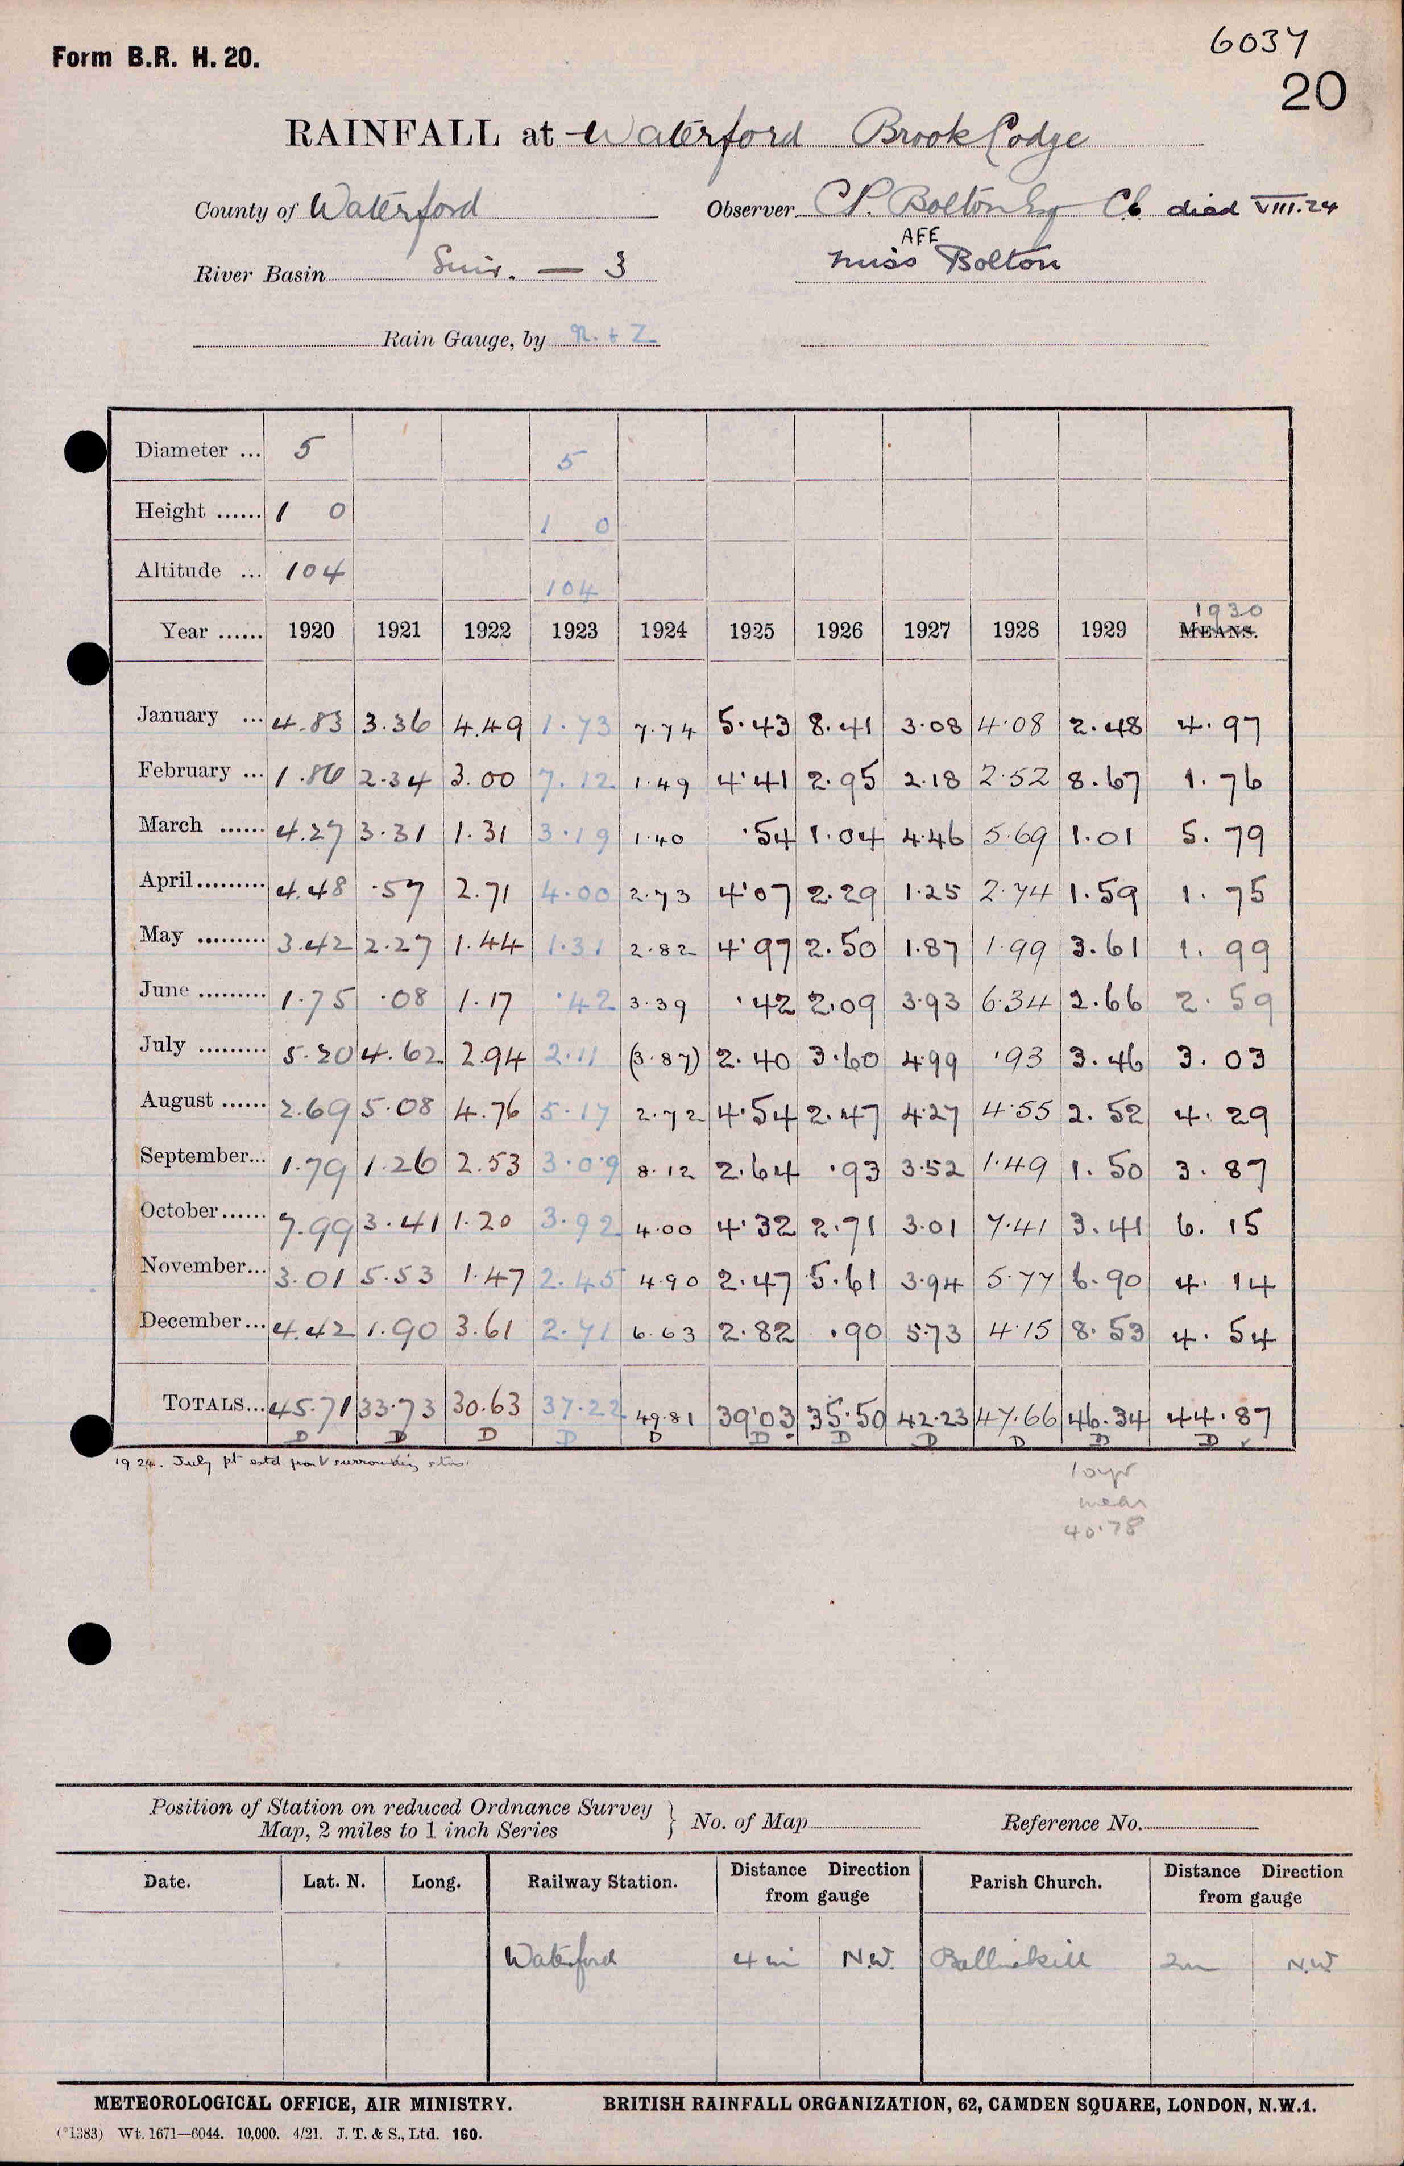 Form B.R. H. 20.
6034
20
RAINFALL at Waterford Brook Lodge
County of Waterford Observer C.P. Bolton Esq CB died VIII.24
AFE
River Basin Suir. — 3 Miss Bolton
Rain Gauge, by N. + Z
Diameter ... 5 5
Height ...... 1 0 1 0
Altitude ... 104 104
1930
Year ...... 1920 1921 1922 1923 1924 1925 1926 1927 1928 1929 MEANS.
January ... 4.83 3.36 4.49 1.73 7.74 5.43 8.41 3.08 4.08 2.48 4.97
February ... 1.86 2.34 3.00 7.12 1.49 4.41 2.95 2.18 2.52 8.67 1.76
March ...... 4.27 3.31 1.31 3.19 1.40 .54 1.04 4.46 5.69 1.01 5.79
April......... 4.48 .57 2.71 4.00 2.73 4.07 2.29 1.25 2.74 1.59 1.75
May ......... 3.42 2.27 1.44 1.31 2.82 4.97 2.50 1.87 1.99 3.61 1.99
June ......... 1.75 .08 1.17 .42 3.39 .42 2.09 3.93 6.34 2.66 2.59
July ......... 5.20 4.62 2.94 2.11 (3.87) 2.40 3.60 4.99 .93 3.46 3.03
August ...... 2.69 5.08 4.76 5.17 2.72 4.54 2.47 4.27 4.55 2.52 4.29
September... 1.79 1.26 2.53 3.09 8.12 2.64 .93 3.52 1.49 1.50 3.87
October...... 7.99 3.41 1.20 3.92 4.00 4.32 2.71 3.01 7.41 3.41 6.15
November... 3.01 5.53 1.47 2.45 4.90 2.47 5.61 3.94 5.77 6.90 4.14
December... 4.42 1.90 3.61 2.71 6.63 2.82 .90 5.73 4.15 8.53 4.54
TOTALS... 45.71 33.73 30.63 37.22 49.81 39.03 35.50 42.23 47.66 46.34 44.87
D D D D D D D D D D D
1924. July pt estd from surrounding stns.
10 yr
mean
40.78
Position of Station on reduced Ordnance Survey
Map, 2 miles to 1 inch Series } No. of Map Reference No.
Date. Lat. N. Long. Railway Station. Distance Direction from gauge Parish Church. Distance Direction from gauge
Waterford 4 mi N.W. Ballinakill 2m N.W
METEOROLOGICAL OFFICE, AIR MINISTRY. BRITISH RAINFALL ORGANIZATION, 62, CAMDEN SQUARE, LONDON, N.W.1.
(*1383) Wt. 1671—6044. 10,000. 4/21. J. T. & S., Ltd. 160.